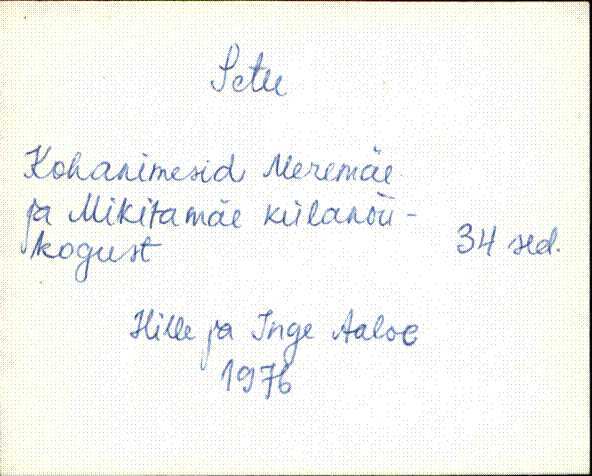 Setu
Kohanimesid Meremäe
ja Mikitamäe külanõu-
kogust
34 sed.
Hille ja Inge Aaloe
1976